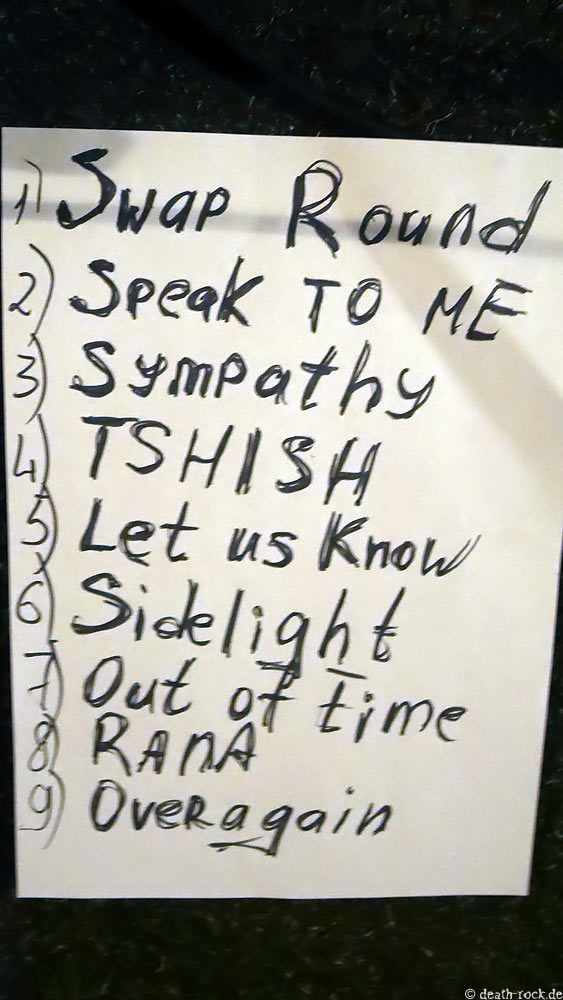 1) Swap Round
2) Speak TO ME
3) Sympathy
4) TSHISH
5) Let us Know
6) Sidelight
7) Out of time
8) RAnA
9) Overagain
© death-rock.de